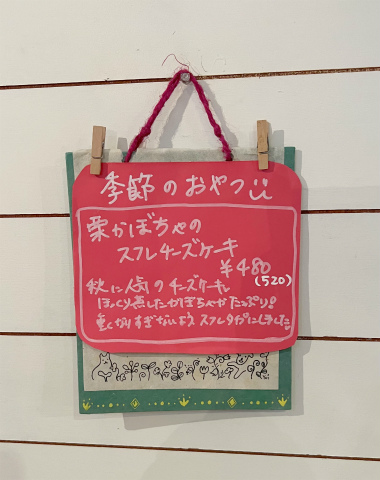 季節のおやつ
栗かぼちゃの
スフレチーズケーキ
¥480
(520)
秋に人気のチーズケーキ。
ほっくり蒸したかぼちゃがたっぷり!
重くなりすぎないよう スフレタイプにしました